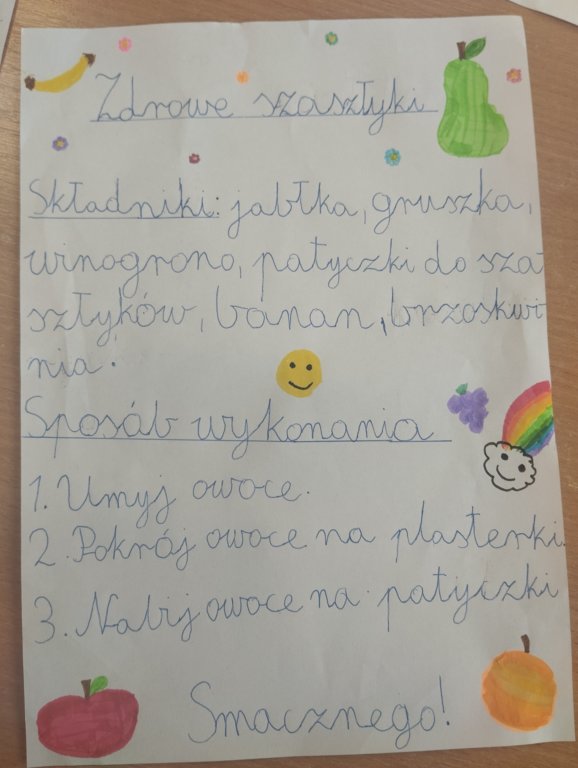 Zdrowe szaszłyki
Składniki: jabłka, gruszka,
winogrono, patyczki do sza
szłyków, banan, brzoskwi
nia.
Sposób wykonania
1. Umyj owoce.
2. Pokrój owoce na plasterki.
3. Nabij owoce na patyczki
Smacznego!